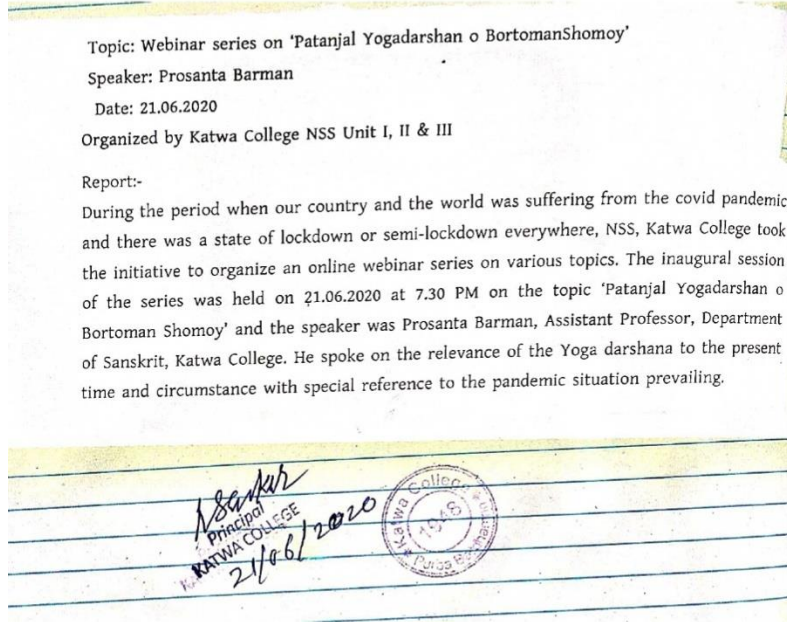 Topic: Webinar series on 'Patanjal Yogadarshan o BortomanShomoy'
Speaker: Prosanta Barman
Date: 21.06.2020
Organized by Katwa College NSS Unit I, II & III
Report:-
During the period when our country and the world was suffering from the covid pandemic
and there was a state of lockdown or semi-lockdown everywhere, NSS, Katwa College took
the initiative to organize an online webinar series on various topics. The inaugural session
of the series was held on 21.06.2020 at 7.30 PM on the topic 'Patanjal Yogadarshan o
Bortoman Shomoy' and the speaker was Prosanta Barman, Assistant Professor, Department
of Sanskrit, Katwa College. He spoke on the relevance of the Yoga darshana to the present
time and circumstance with special reference to the pandemic situation prevailing.
NSarkar
Principal
KATWA COLLEGE
21/06/2020
Katwa College
1948
Purba